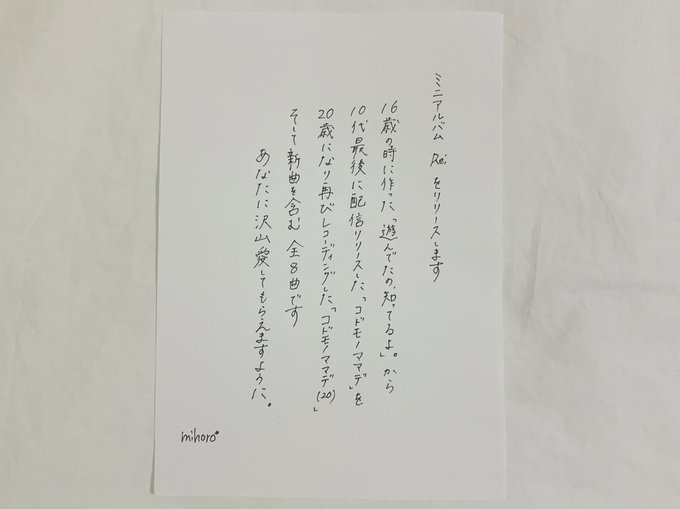 ミニアルバム Rei をリリースします
16歳の時に作った「遊んでたの、知ってるよ。」から
10代最後に配信リリースした「コドモノママデ」を
20歳になり再びレコーディングした「コドモノママデ(20)」
そして新曲を含む 全8曲です
あなたに沢山愛してもらえますように。
mihoro*